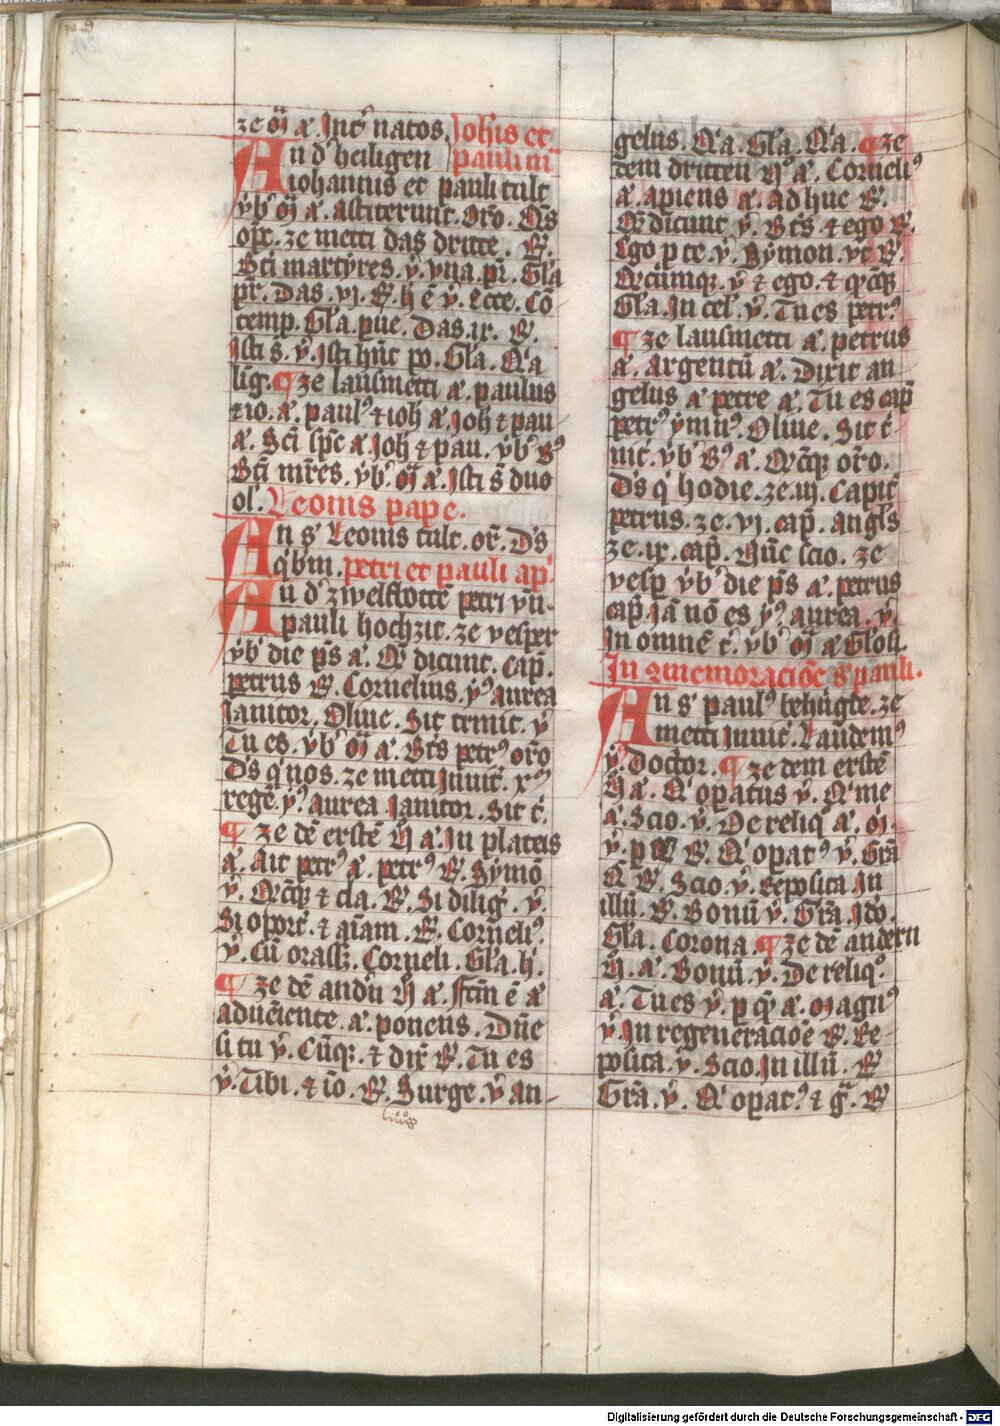 ze m̄ æ. Int᷑ natos. Joh̄is et
An d᷑ heiligen pauli m̄
iohannis et pauli tult
v̈b᷑ m̄ a. astiterunt. or̄o. Ds
opr̄. ze metti das dritte. R̷.
Sc̄i martyres. v̇. vna. pr̄. Gl̄a
pr̄. Das. vi. R̷. h̄ ē v̇. Ecce. Cō
temp. Gl̄a. pue. Das. ix. R̷.
Isti s̄. v̇. Isti hūt po. Gl̄a. Q᷑a
līg. ¶ ze lausmetti a. paulus
⁊ io. a. paulꝰ ⁊ ioh a. Joh ⁊ pau
a. Sc̄i sp̄c a Joh ⁊ pau. v̈b᷑ Bꝰ
Sc̄i mr̄es. v̈b᷑. m̄ a. Isti s̄ duo
ol᷑. Leonis pape.
An s᷑ Leonis tult. or̄. Ds
q᷑ bm̄. petri et pauli ap᷑
An d᷑ zwelfbottē petri vn̄
pauli hochzit. ze vesper
v̈b᷑ die ps̄ a. Q᷑ dicunt. Cap̄.
petrus R̷. Cornelius. yꝰ aurea
Janitor. Oliue. Sit trinit. v̇
Tu es. v̈b᷑ m̄ a. Bt̄s petrꝰ or̄o
Ds q᷑ nos. ze metti Inuit̄. xꝰ
rege. yꝰ aurea Janitor. Sit t̄.
¶ ze dē erstē N̄ a. In plateis
a. Ait petrꝰ a. petrꝰ R̷. Symō
v̇. Q̄cūqꝫ ⁊ cla. R̷. Si dilig᷑. v̇.
Si oport᷑. ⁊ aīam. R̷. Corneliꝰ.
v̇. Cū orassꝫ. Corneli. Gl̄a. h̄.
¶ ze dē and᷑n N̄ a. Sc̄m ē a
aduēiente. a. ponens. Dn̄e
si tu v̇. Cūqꝫ. ⁊ dix̄ R̷. Tu es
v̇. Tibi. ⁊ īo. R̷. Surge. v̇ An-
gelus. Q᷑a. Gl̄a. Q᷑a. ¶ ze
dem dritten N̄ᵒ a. Corneliꝰ
a. apiens a. Ad huc R̷.
Q᷑ dicunt v̇. Bt̄s. ⁊ ego R̷.
Ego p te. v̇. Symon. vt R̷.
Q̄cumqꝫ. v̇ ⁊ ego. ⁊ q̄cūqꝫ
Gl̄a. In cel᷑. v̇. Tu es petrꝰ.
¶ ze lausmetti a. petrus
a. Argentū a. Dixit an
gelus a petre a. Tu es cap̄
petrꝰ ym̄nꝰ. Oliue. Sit t̄
nit᷑. v̈b᷑ Bꝰ a. Q̄cūqꝫ or̄o.
Ds q᷑ hodie. ze. iii. Capit̄
petrus. ze. vi. cap̄. angl̄s
ze. ix. cap̄. Nūc scio. ze
vesp̄ v̈b᷑ die ps̄ a. petrus
cap̄. Jā nō es yꝰ. aurea. v̇.
In omnē t̄. v̈b᷑ m̄ a Glosi.
In ꝯmemoracioē s᷑ pauli.
An s᷑ paulꝰ behügte. ze
metti Inuit̄. Laudemꝰ
v̇. Doctor. ¶ ze dem erstē
N̄ a. Q᷑ opatus v̇. Q᷑ me
a. Scio. v̇. De reliq᷑ a. m̄.
v̇. p q̄ R̷. Q᷑ opatꝰ v̇. Grā
Q᷑ R̷. Scio. v̇. Reposita. In
illū. R̷. Bonū v̇. Grā. Ido.
Gl̄a. Corona. ¶ ze dē andern
N̄. a. Bonū. v̇. De reliqꝰ.
a. Tu es v̇. p q̄ a. Magnꝰ
v̇. In regeneracioē R̷. Re-
posita. v̇. Scio. In illū. R̷
Grā. v̇. Q᷑ opatꝰ. ⁊ g̃. R̷
Digitalisierung gefördert durch die Deutsche Forschungsgemeinschaft - DFG